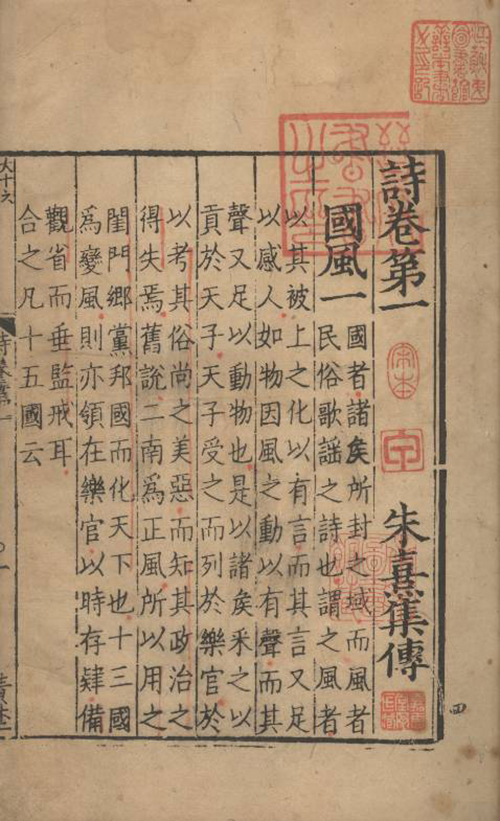 詩卷第一
朱熹集傳
國風一
國者諸矦所封之域而風者
民俗歌謠之詩也謂之風者
以其被上之化以有言而其言又足
以感人如物因風之動以有聲而其
聲又足以動物也是以諸矦采之以
貢於天子天子受之而列於樂官於
以考其俗尚之美惡而知其政治之
得失焉舊說二南爲正風所以用之
閨門鄉黨邦國而化天下也十三國
爲變風則亦領在樂官以時存肄備
觀省而垂監戒耳
合之凡十五國云
大十六
詩卷第一
四
宋本